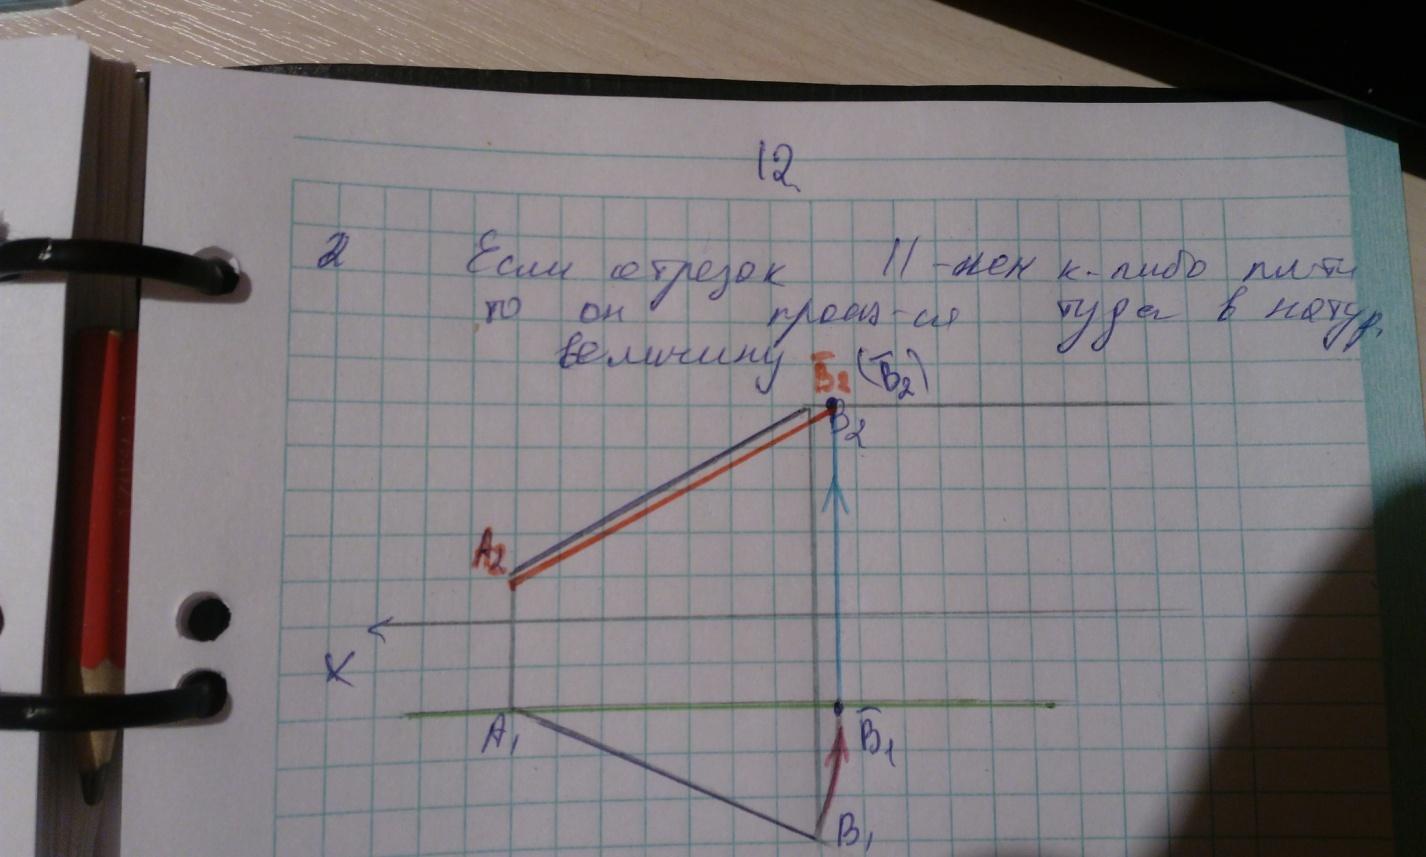 12
2 Если отрезок ||-лен к.-либо пл-ти
то он проец-ся туда в натур.
величину
B̅2 (B̅2)
B2
A2
X
A1 B̅1
B1